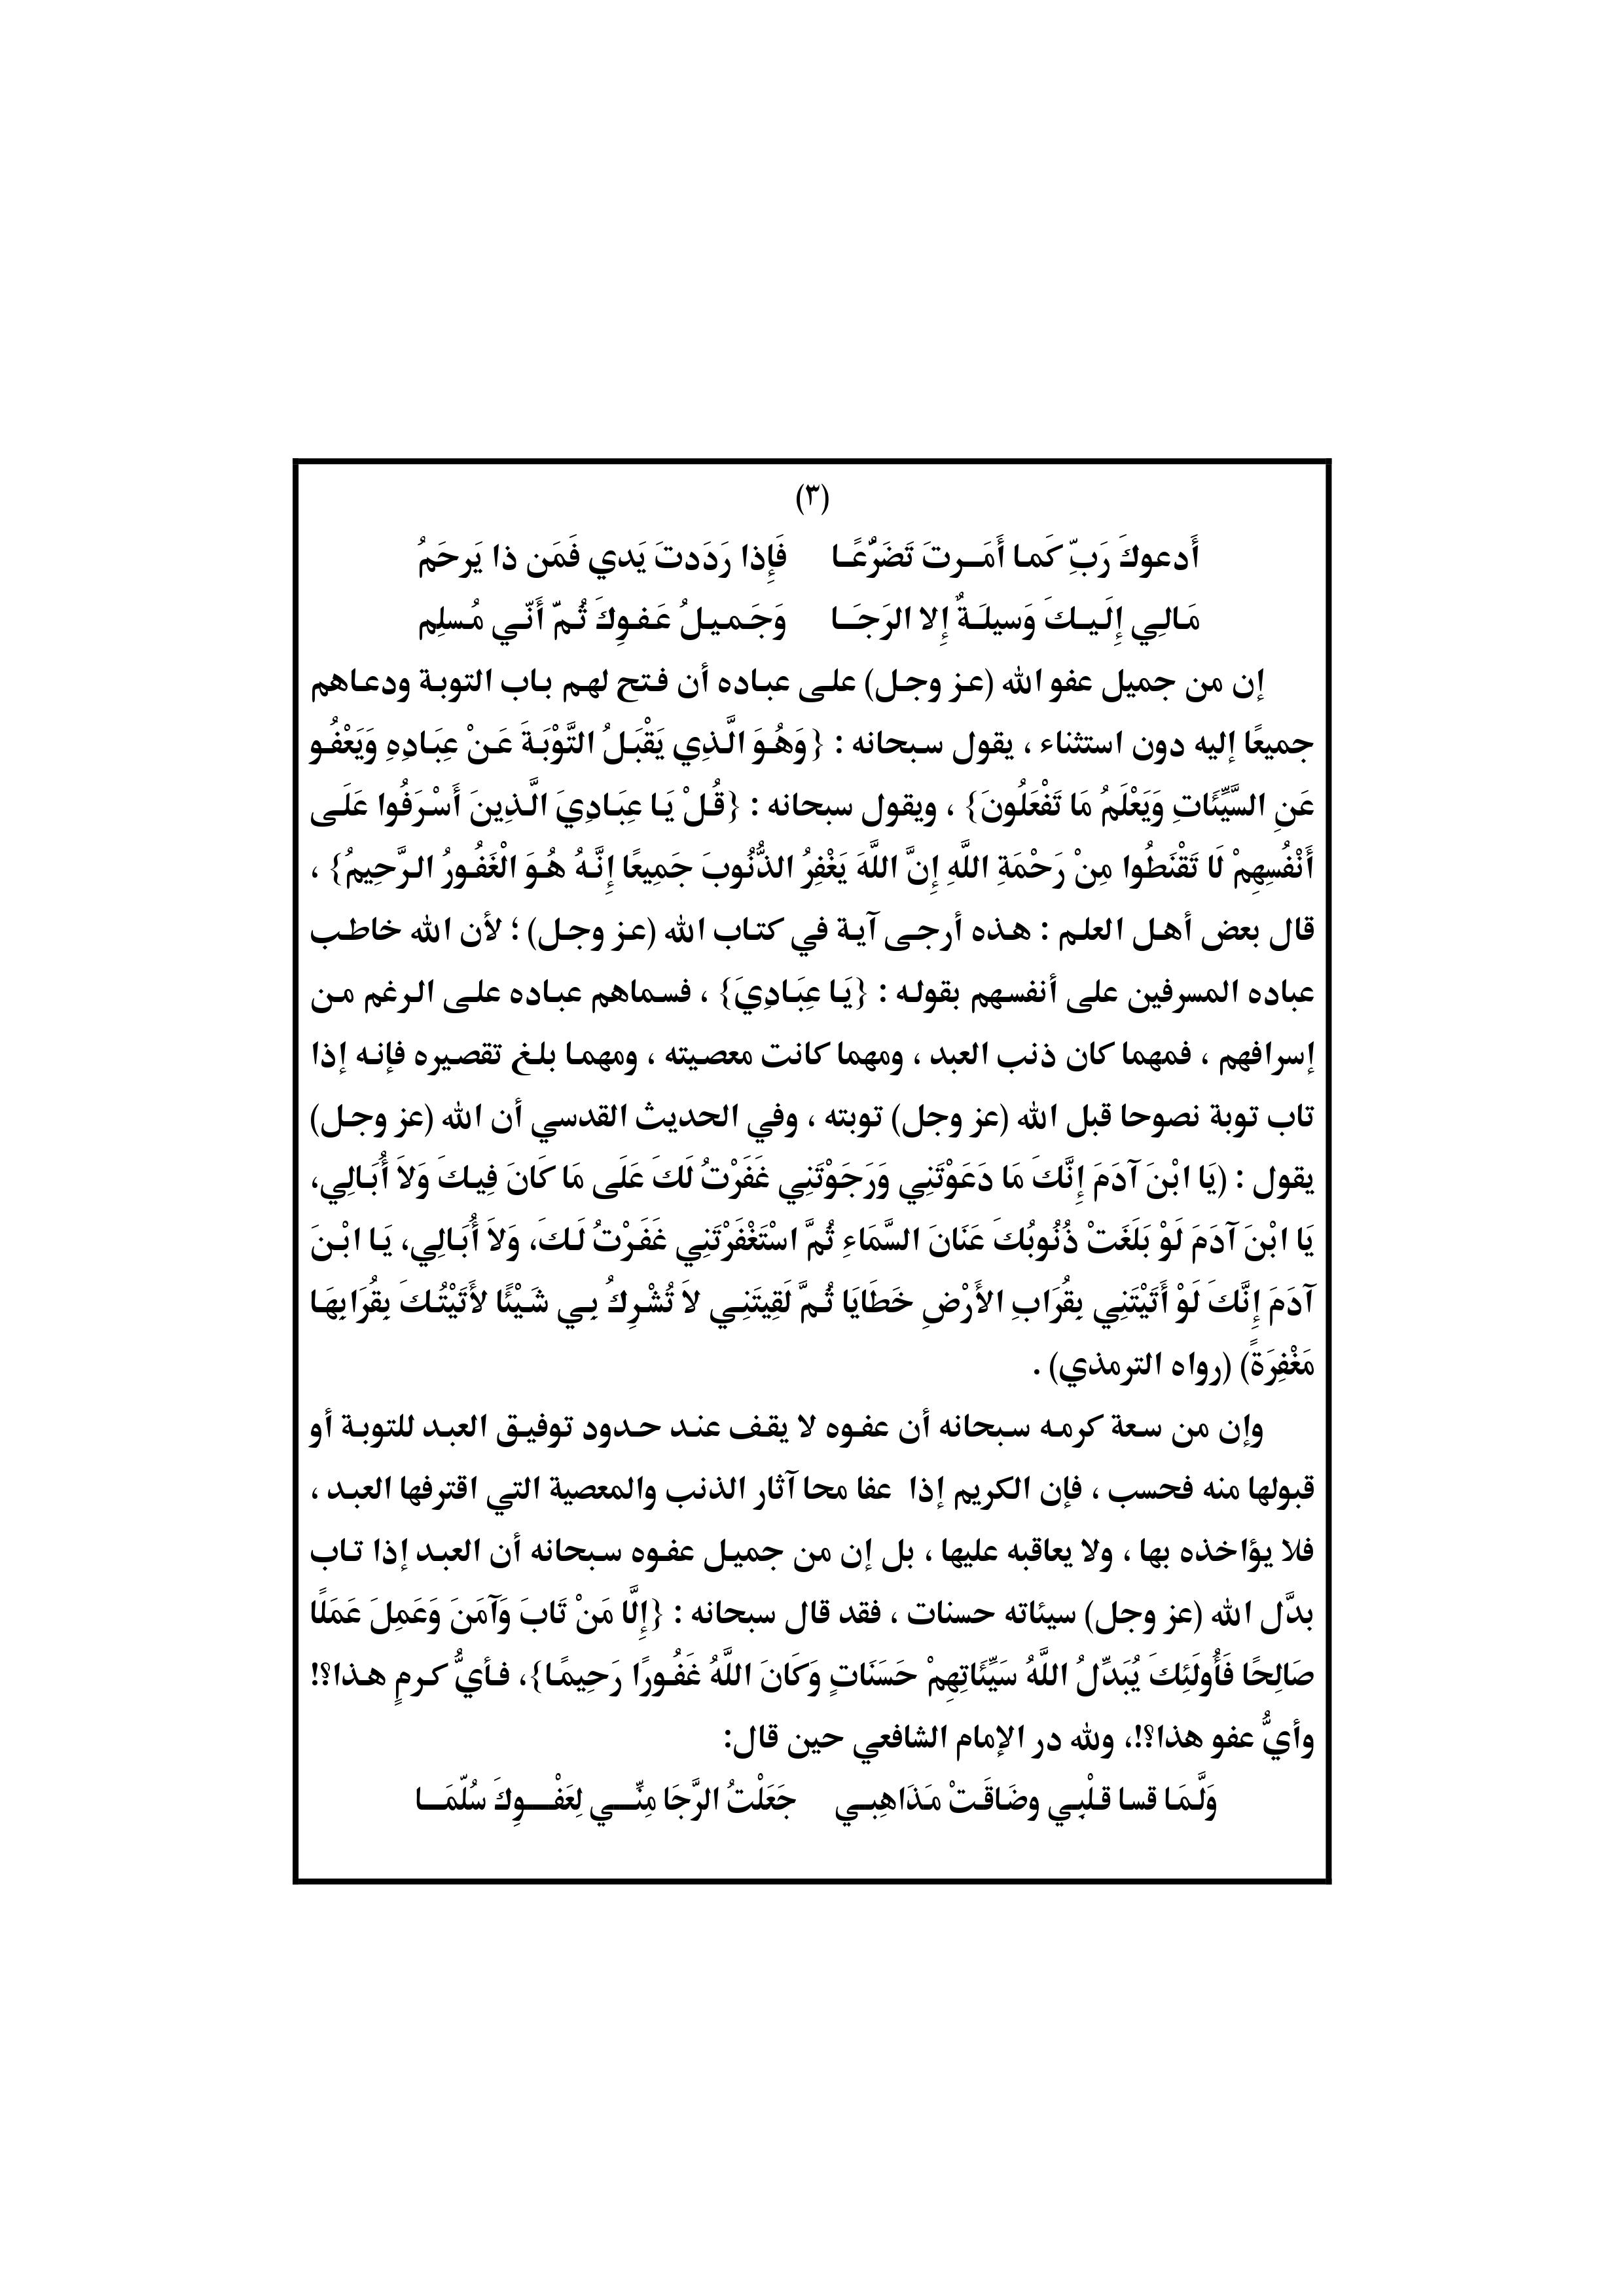 (٣)
أَدعوكَ رَبِّ كَما أَمَرتَ تَضَرُّعًا فَإِذا رَدَدتَ يَدي فَمَن ذا يَرحَمُ
مَالِي إِلَيكَ وَسيلَةٌ إِلا الرَجَا وَجَميلُ عَفوِكَ ثُمّ أَنّي مُسلِم
إن من جميل عفو الله (عز وجل) على عباده أن فتح لهم باب التوبة ودعاهم
جميعًا إليه دون استثناء ، يقول سبحانه : {وَهُوَ الَّذِي يَقْبَلُ التَّوْبَةَ عَنْ عِبَادِهِ وَيَعْفُو
عَنِ السَّيِّئَاتِ وَيَعْلَمُ مَا تَفْعَلُونَ} ، ويقول سبحانه : {قُلْ يَا عِبَادِيَ الَّذِينَ أَسْرَفُوا عَلَى
أَنْفُسِهِمْ لَا تَقْنَطُوا مِنْ رَحْمَةِ اللَّهِ إِنَّ اللَّهَ يَغْفِرُ الذُّنُوبَ جَمِيعًا إِنَّهُ هُوَ الْغَفُورُ الرَّحِيمُ} ،
قال بعض أهل العلم : هذه أرجى آية في كتاب الله (عز وجل) ؛ لأن الله خاطب
عباده المسرفين على أنفسهم بقوله : {يَا عِبَادِيَ} ، فسماهم عباده على الرغم من
إسرافهم ، فمهما كان ذنب العبد ، ومهما كانت معصيته ، ومهما بلغ تقصيره فإنه إذا
تاب توبة نصوحا قبل الله (عز وجل) توبته ، وفي الحديث القدسي أن الله (عز وجل)
يقول : (يَا ابْنَ آدَمَ إِنَّكَ مَا دَعَوْتَنِي وَرَجَوْتَنِي غَفَرْتُ لَكَ عَلَى مَا كَانَ فِيكَ وَلاَ أُبَالِي،
يَا ابْنَ آدَمَ لَوْ بَلَغَتْ ذُنُوبُكَ عَنَانَ السَّمَاءِ ثُمَّ اسْتَغْفَرْتَنِي غَفَرْتُ لَكَ، وَلاَ أُبَالِي، يَا ابْنَ
آدَمَ إِنَّكَ لَوْ أَتَيْتَنِي بِقُرَابِ الأَرْضِ خَطَايَا ثُمَّ لَقِيتَنِي لاَ تُشْرِكُ بِي شَيْئًا لأَتَيْتُكَ بِقُرَابِهَا
مَغْفِرَةً) (رواه الترمذي) .
وإن من سعة كرمه سبحانه أن عفوه لا يقف عند حدود توفيق العبد للتوبة أو
قبولها منه فحسب ، فإن الكريم إذا عفا محا آثار الذنب والمعصية التي اقترفها العبد ،
فلا يؤاخذه بها ، ولا يعاقبه عليها ، بل إن من جميل عفوه سبحانه أن العبد إذا تاب
بدَّل الله (عز وجل) سيئاته حسنات ، فقد قال سبحانه : {إِلَّا مَنْ تَابَ وَآمَنَ وَعَمِلَ عَمَلًا
صَالِحًا فَأُولَئِكَ يُبَدِّلُ اللَّهُ سَيِّئَاتِهِمْ حَسَنَاتٍ وَكَانَ اللَّهُ غَفُورًا رَحِيمًا}، فأيُّ كرمٍ هذا؟!
وأيُّ عفو هذا؟!، ولله در الإمام الشافعي حين قال:
وَلَّمَا قسا قلْبِي وضَاقَتْ مَذَاهِبي جَعَلْتُ الرَّجَا مِنِّي لِعَفْوِكَ سُلّمَا